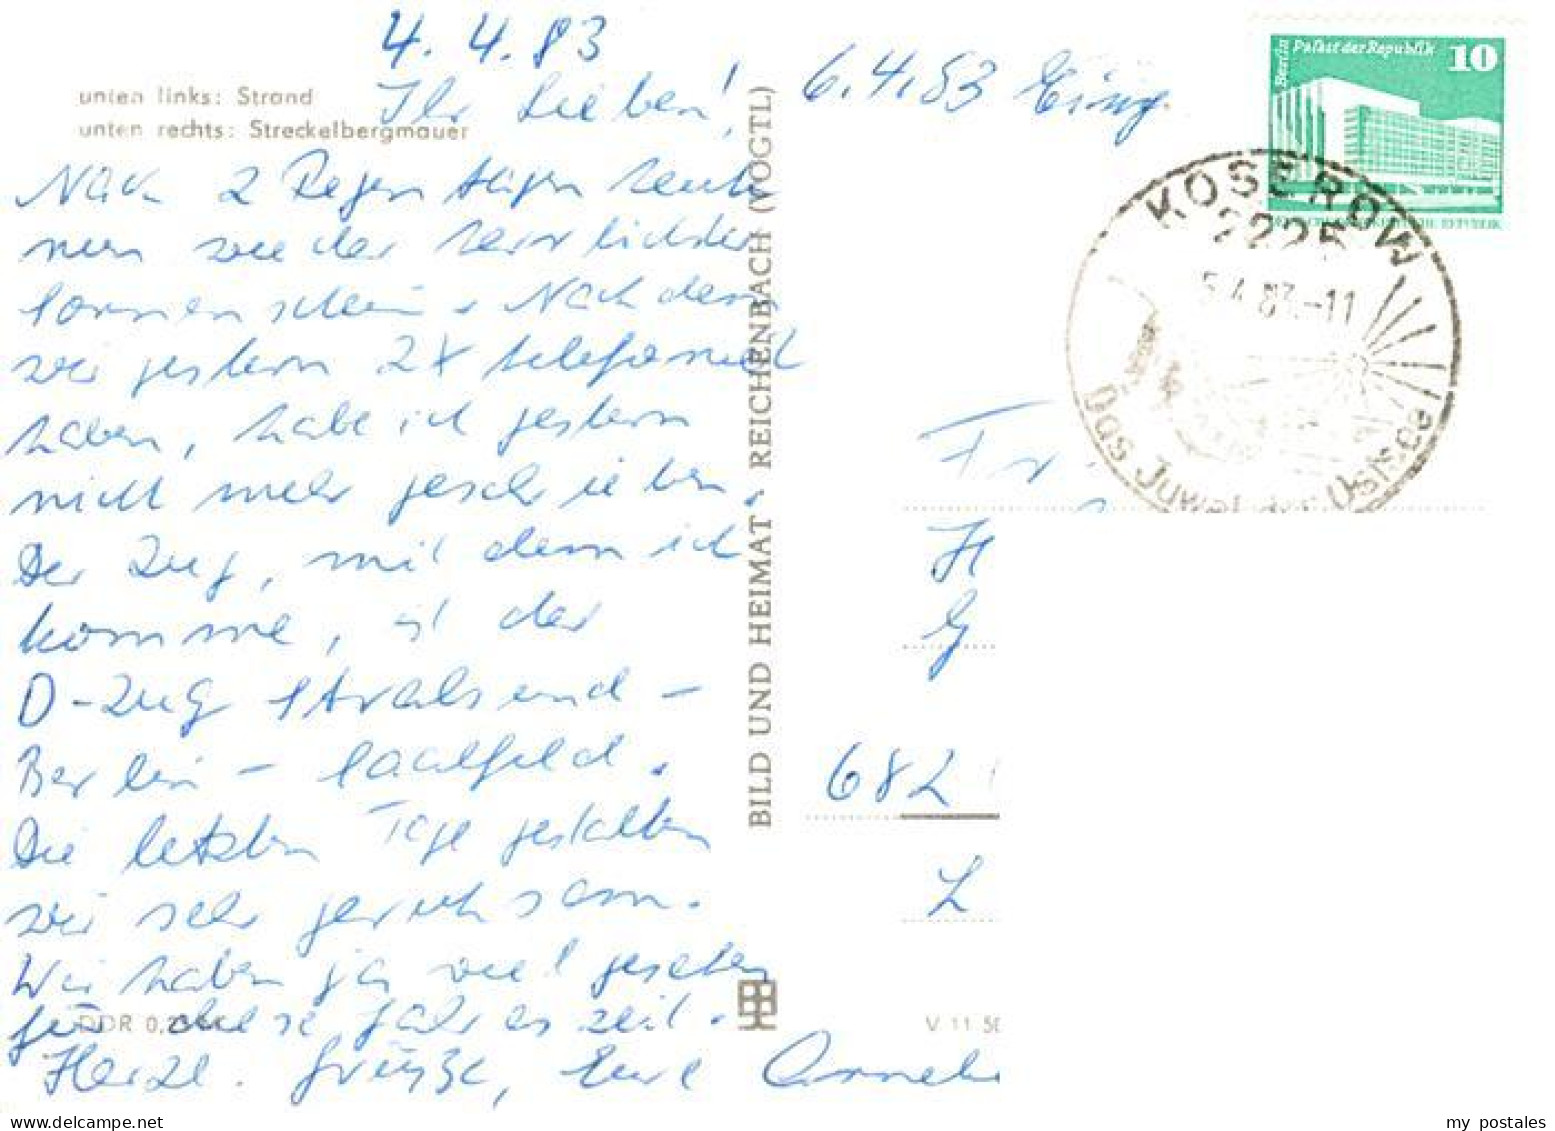 4.4.83
unten links: Strand
unten rechts: Streckelbergmauer
Ihr Lieben!
Nach 2 Regentagen heute
nun wieder herrlichster
Sonnenschein. Nachdem
wir gestern 2x telefoniert
haben, habe ich gestern
nicht mehr geschrieben.
Der Zug, mit dem ich
komme, ist der
D-Zug Stralsund -
Berlin - Saalfeld.
Die letzten Tage gestalten
wir sehr geruhsam.
Wir haben ja viel gesehen
für diese Jahreszeit.
Herzl. Grüße, Eure
DDR
BILD UND HEIMAT REICHENBACH (VOGTL)
V 11 50
6.4.83 Eing.
Berlin Palast der Republik 10
KOSEROW
2225
5.4.83.-11
Das Juwel der Ostsee
Fr.
H
G
682
L